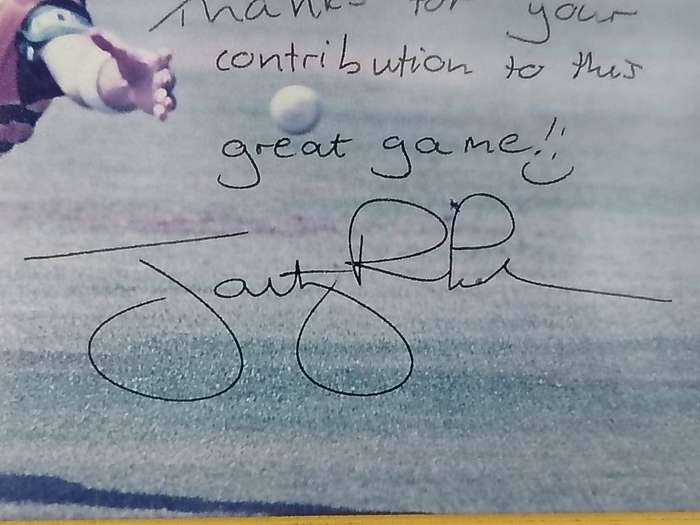 Thanks for your
contribution to this
great game!!